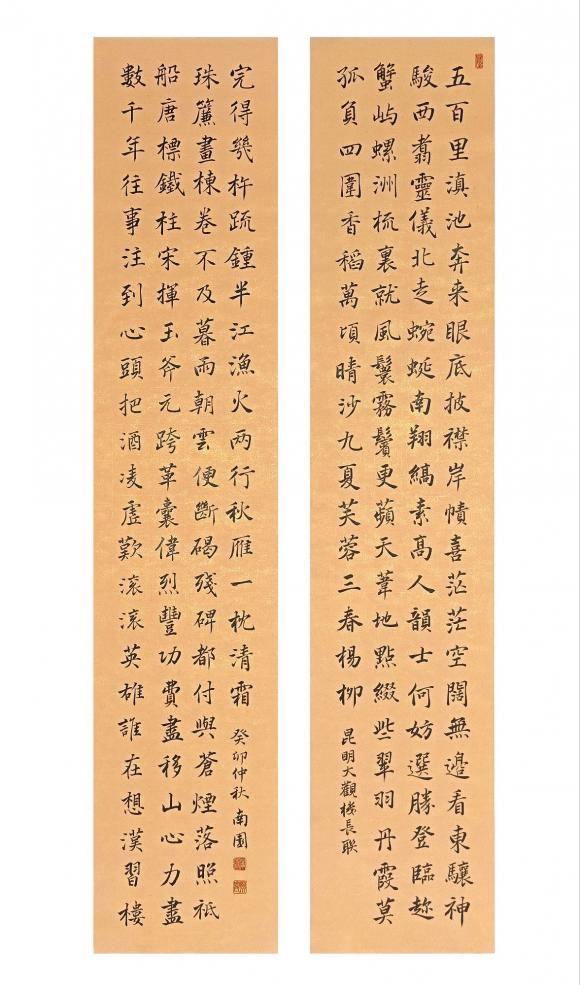 五百里滇池奔来眼底披襟岸幘喜茫茫空闊無邊看東驤神
駿西翥靈儀北走蜿蜒南翔縞素高人韻士何妨選勝登臨趂
蟹嶼螺洲梳裹就風鬟霧鬢更蘋天葦地點綴些翠羽丹霞莫
孤負四圍香稻萬頃晴沙九夏芙蓉三春楊柳
昆明大觀楼長联
數千年往事注到心頭把酒凌虛歎滚滚英雄誰在想漢習樓
船唐標鐵柱宋揮玉斧元跨革囊偉烈豐功費盡移山心力盡
珠簾畫棟卷不及暮雨朝雲便斷碣残碑都付與蒼煙落照祗
完得幾杵疏鍾半江漁火两行秋雁一枕清霜
癸卯仲秋南園